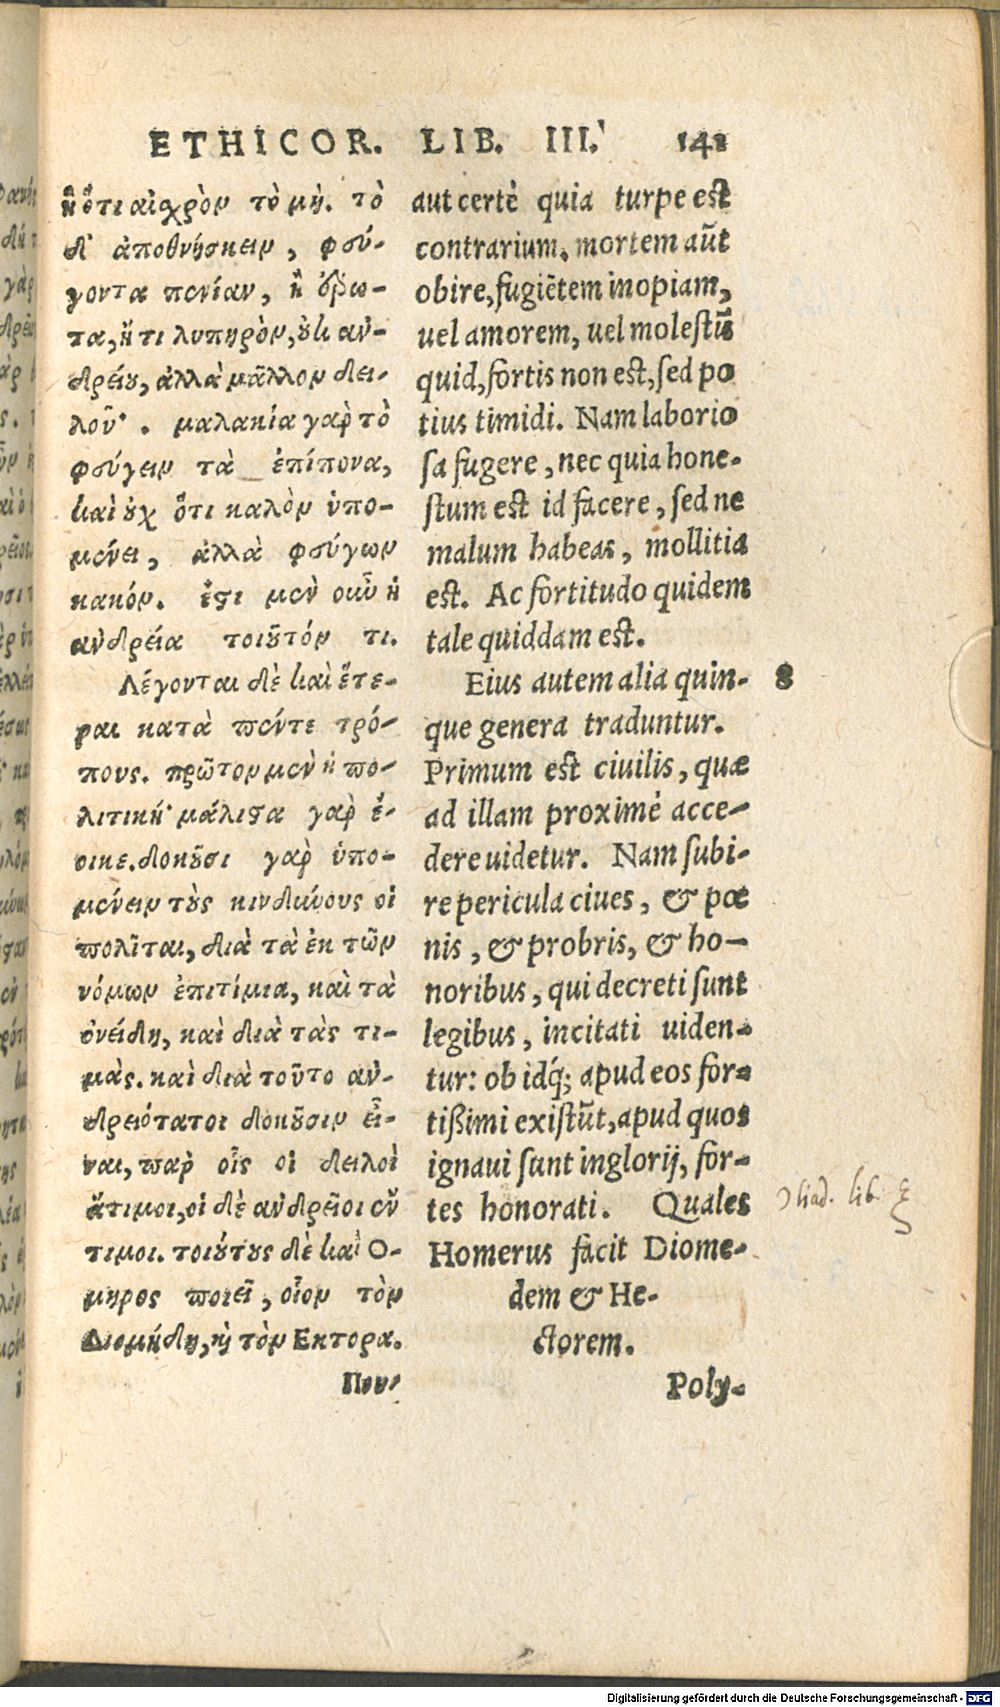 ETHICOR. LIB. III. 141
ἢ ὅτι αἰσχρὸν τὸ μή. τὸ
δ' ἀποθνήσκειν, φεύ-
γοντα πενίαν, ἢ ἔρω-
τα, ἤ τι λυπηρὸν, οὐκ ἀν-
δρείου, ἀλλὰ μᾶλλον δει-
λοῦ· . μαλακία γὰρ τὸ
φεύγειν τὰ ἐπίπονα,
καὶ οὐχ ὅτι καλὸν ὑπο-
μένει, ἀλλὰ φεύγων
κακόν. ἔστι μὲν οὖν ἡ
ἀνδρεία τοιοῦτόν τι.
Λέγονται δὲ καὶ ἕτε-
ραι κατὰ πέντε τρό-
πους. πρῶτον μὲν ἡ πο-
λιτική· μάλιστα γὰρ ἔ-
οικε. δοκοῦσι γὰρ ὑπο-
μένειν τοὺς κινδύνους οἱ
πολῖται, διὰ τὰ ἐκ τῶν
νόμων ἐπιτίμια, καὶ τὰ
ὀνείδη, καὶ διὰ τὰς τι-
μὰς. καὶ διὰ τοῦτο ἀν-
δρειότατοι δοκοῦσιν εἶ-
ναι, παρ οἷς οἱ δειλοὶ
ἄτιμοι, οἱ δὲ ἀνδρεῖοι ἔν
τιμοι. τοιούτους δὲ καὶ Ο-
μηρος ποιεῖ, οἷον τὸν
Διομήδη, καὶ τὸν Εκτορα.
Που-
aut certè quia turpe est
contrarium. mortem aũt
obire, fugiẽtem inopiam,
uel amorem, uel molestũ
quid, fortis non est, sed po
tius timidi. Nam laborio
sa fugere, nec quia hone-
stum est id facere, sed ne
malum habeas, mollitia
est. Ac fortitudo quidem
tale quiddam est.
Eius autem alia quin- 8
que genera traduntur.
Primum est ciuilis, quæ
ad illam proximè acce-
dere uidetur. Nam subi-
re pericula ciues, & pœ
nis, & probris, & ho-
noribus, qui decreti sunt
legibus, incitati uiden-
tur: ob idq́; apud eos for-
tißimi existũt, apud quos
ignaui sunt inglorij, for-
tes honorati. Quales
Homerus facit Diome-
dem & He-
ctorem.
Poly-
Iliad. lib.
Digitalisierung gefördert durch die Deutsche Forschungsgemeinschaft - DFG